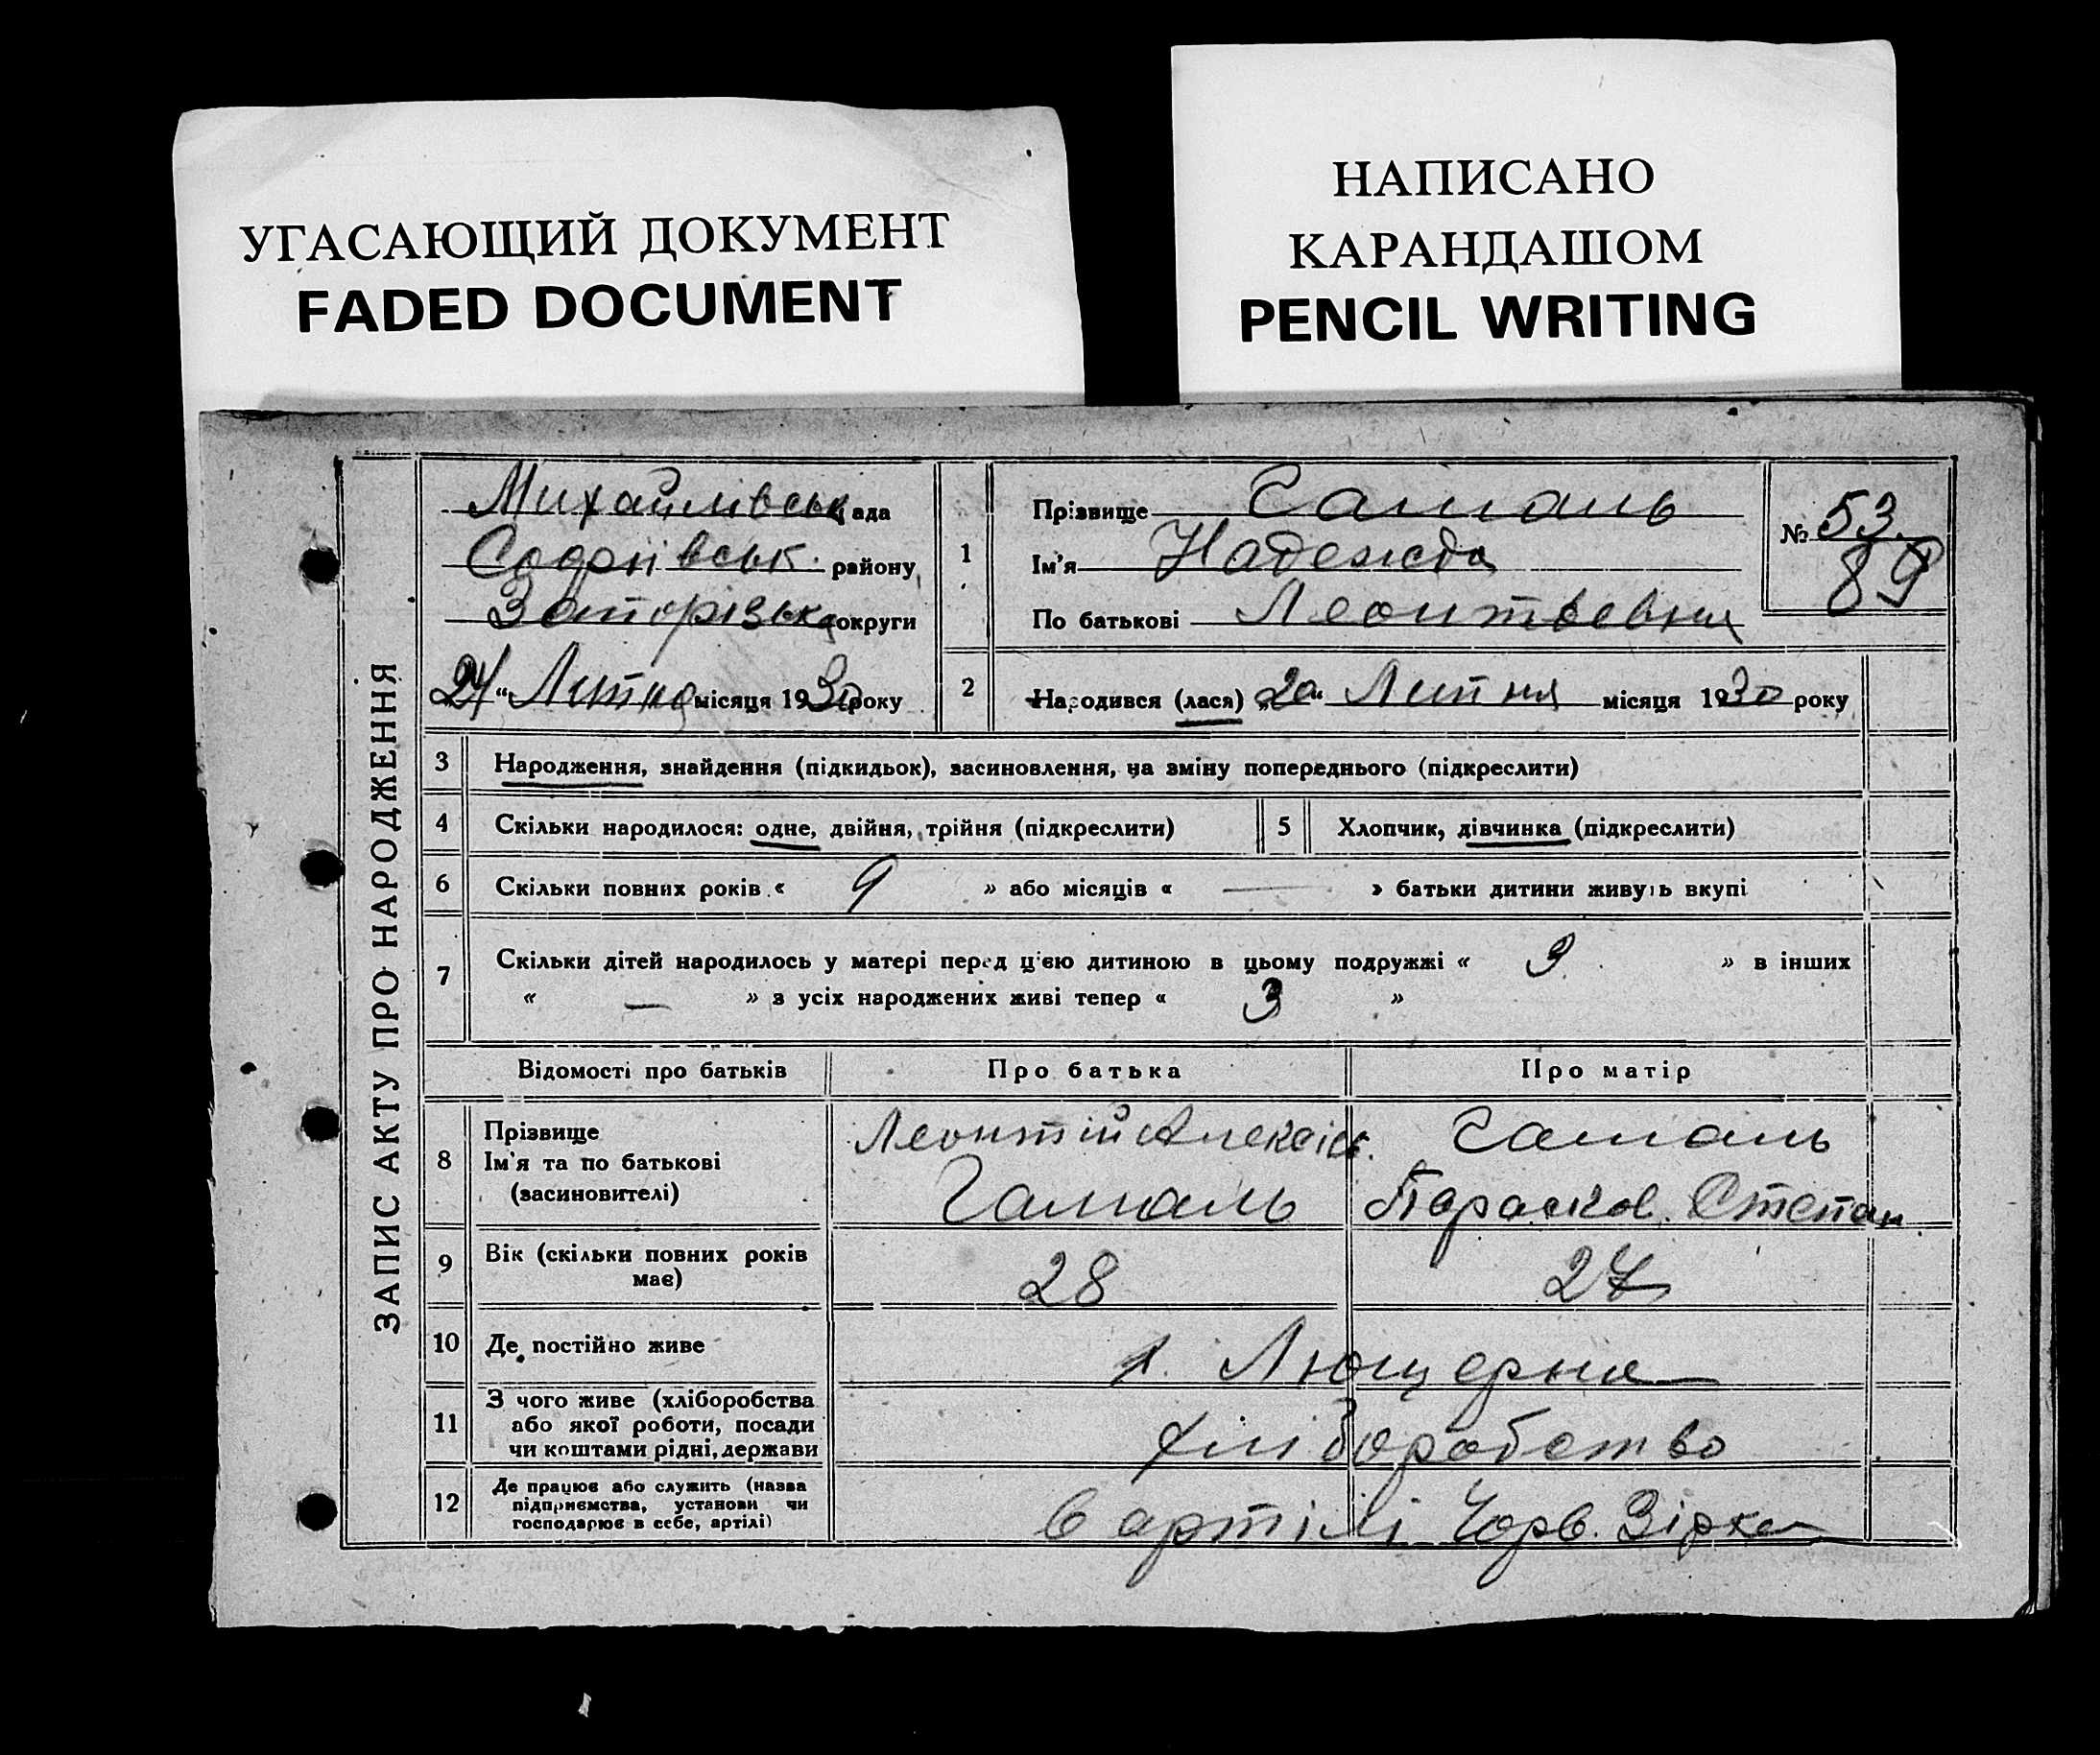 УГАСАЮЩИЙ ДОКУМЕНТ
FADED DOCUMENT
НАПИСАНО
КАРАНДАШОМ
PENCIL WRITING
ЗАПИС АКТУ ПРО НАРОДЖЕННЯ
Михайлівськ ада
району
Запорізька округи
24 " Лютня місяця 1930 року
1
Прізвище Гамаль
Ім'я Надежда
По батькові Леонтьевна
№ 53.
89
2 Народився (лася) „20" Лютня місяця 1930 року
3 Народження, знайдення (підкидьок), засиновлення, на зміну попереднього (підкреслити)
4 Скільки народилося: одне, двійня, трійня (підкреслити) 5 Хлопчик, дівчинка (підкреслити)
6 Скільки повних років « 9 » або місяців « — » батьки дитини живуть вкупі
7 Скільки дітей народилось у матері перед цією дитиною в цьому подружжі « 3 » в інших
« — » з усіх народжених живі тепер « 3 »
Відомості про батьків Про батька Про матір
8 Прізвище
Ім'я та по батькові
(засиновителі)
Леонтій Алексієв.
Гамаль
Гамаль
Парасков. Степан
9 Вік (скільки повних років
має)
28 27
10 Де постійно живе х. Люцерна
11 З чого живе (хліборобства
або якої роботи, посади
чи коштами рідні, держави
хліборобство
12 Де працює або служить (назва
підприємства, установи чи
господарює в себе, артілі)
в артілі Черв. Зірка